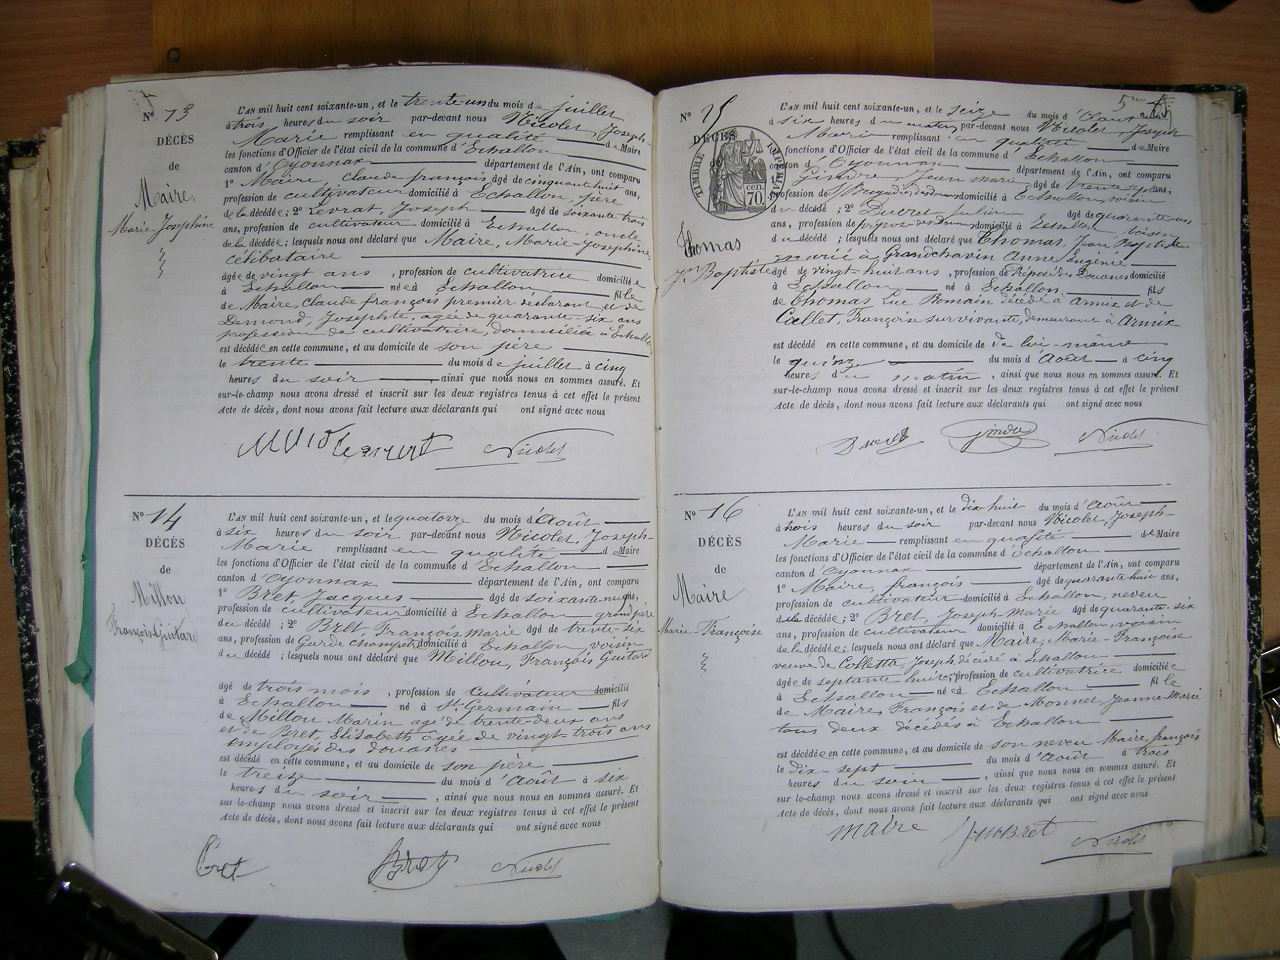 N° 13
DÉCÈS
de
Maire,
Marie Josephine
L'AN mil huit cent soixante-un, et le trente un du mois de juillet
à trois heures du soir par-devant nous Nicolet, Joseph-
Marie remplissant en qualité de Maire
les fonctions d'Officier de l'état civil de la commune d'Echallon
canton d'Oyonnax département de l'Ain, ont comparu
1° Maire, claude françois âgé de cinquante huit ans,
profession de cultivateur domicilié à Echallon, père
de la décédée; 2° Levrat, Joseph âgé de soixante trois
ans, profession de cultivateur domicilié à Echallon, oncle
de la décédée; lesquels nous ont déclaré que Maire, Marie-Josephine
célibataire
âgée de vingt ans, profession de cultivatrice domiciliée
à Echallon née à Echallon fille
de Maire, claude françois premier déclarant et de
Josephte, agée de quarante-six ans
profession de cultivatrice, domiciliée à Echallon
est décédée en cette commune, et au domicile de son père
le trente du mois de juillet à cinq
heures du soir ainsi que nous nous en sommes assuré. Et
sur-le-champ nous avons dressé et inscrit sur les deux registres tenus à cet effet le présent
Acte de décès, dont nous avons fait lecture aux déclarants qui ont signé avec nous
Nicolet
N° 14
DÉCÈS
de
Millou
François Guitare
L'AN mil huit cent soixante-un, et le quatorze du mois d'Août
à six heures du soir par-devant nous Nicolet, Joseph-
Marie remplissant en qualité de Maire
les fonctions d'Officier de l'état civil de la commune d'Echallon
canton d'Oyonnax département de l'Ain, ont comparu
1° Bret Jacques âgé de soixante-neuf ans,
profession de cultivateur domicilié à Echallon grand père
du décédé; 2° Bret François Marie âgé de trente-six
ans, profession de Garde champêtre domicilié à Echallon, voisin
du décédé; lesquels nous ont déclaré que Millou, François Guitare
âgé de trois mois, profession de Cultivateur domicilié
à Echallon né à St Germain fils
de Millou Marin agé de trente-deux ans
et de Bret, Elisabeth agée de vingt-trois ans
employés des douanes
est décédé en cette commune, et au domicile de son père
le treize du mois d'Août à six
heures du soir, ainsi que nous nous en sommes assuré. Et
sur-le-champ nous avons dressé et inscrit sur les deux registres tenus à cet effet le présent
Acte de décès, dont nous avons fait lecture aux déclarants qui ont signé avec nous
Bret Bret Nicolet
N° 15
DÉCÈS
TIMBRE IMPÉRIAL
70 cen.
Thomas
Jn Baptiste
L'AN mil huit cent soixante-un, et le seize du mois d'Août
à six heures du matin par-devant nous Nicolet, Joseph
Marie remplissant en qualité de Maire
les fonctions d'Officier de l'état civil de la commune d'Echallon
canton d'Oyonnax département de l'Ain, ont comparu
1° Gindre, Jean marie âgé de trente sept ans,
profession de domicilié à Echallon, voisin
du décédé; 2° Ducret Julien âgé de quarante ans
ans, profession de domicilié à Echallon voisin
du décédé; lesquels nous ont déclaré que Thomas, Jean Baptiste
marié à Grandchavin Anne Eugénie
âgé de vingt-huit ans, profession de Préposé des Douanes domicilié
à Echallon né à Echallon fils
de Thomas, Luc Romain décédé à Armix et de
Callet, Françoise survivante, demeurant à Armix
est décédé en cette commune, et au domicile de de lui-même
le quinze du mois d'Août à cinq
heures du matin, ainsi que nous nous en sommes assuré. Et
sur-le-champ nous avons dressé et inscrit sur les deux registres tenus à cet effet le présent
Acte de décès, dont nous avons fait lecture aux déclarants qui ont signé avec nous
Ducret Gindre Nicolet
N° 16
DÉCÈS
de
Maire
Marie-Françoise
L'AN mil huit cent soixante-un, et le dix huit du mois d'Août
à trois heures du soir par-devant nous Nicolet, Joseph-
Marie remplissant en qualité de Maire
les fonctions d'Officier de l'état civil de la commune d'Echallon
canton d'Oyonnax département de l'Ain, ont comparu
1° Maire, françois âgé de quarante huit ans,
profession de cultivateur domicilié à Echallon, neveu
de la décédée; 2° Bret, Joseph-Marie âgé de quarante-six
ans, profession de cultivateur domicilié à Echallon, voisin
de la décédée; lesquels nous ont déclaré que Maire, Marie-Françoise
veuve de Colletta, Joseph décédé à Echallon
âgée de septante huit, profession de cultivatrice domiciliée
à Echallon née à Echallon fille
de Maire, François et de Monnet, Jeanne-Marie
tous deux décédés à Echallon
est décédée en cette commune, et au domicile de son neveu Maire françois
le dix-sept du mois d'Août à trois
heures du soir, ainsi que nous nous en sommes assuré. Et
sur-le-champ nous avons dressé et inscrit sur les deux registres tenus à cet effet le présent
Acte de décès, dont nous avons fait lecture aux déclarants qui ont signé avec nous
maire JM Bret Nicolet